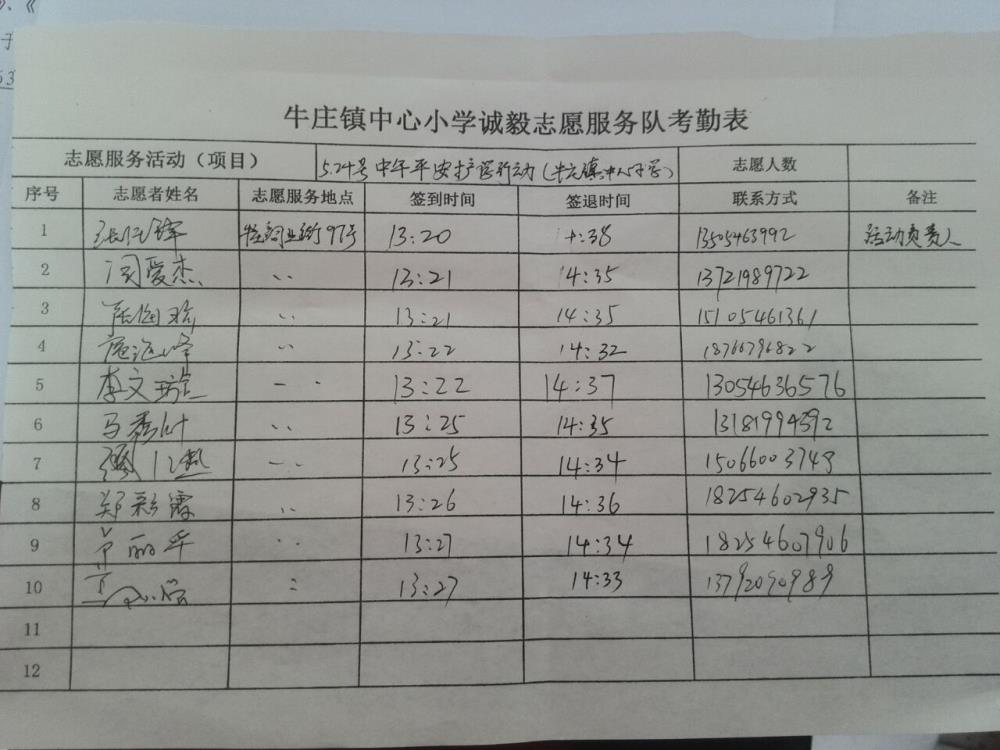 牛庄镇中心小学诚毅志愿服务队考勤表
志愿服务活动（项目） 5.24号中午平安护学行动（牛庄镇中心小学） 志愿人数
序号 志愿者姓名 志愿服务地点 签到时间 签退时间 联系方式 备注
1 97号 13:20 13505463992 活动负责人
2 闫爱杰 13:21 14:35 13721989722
3 13:21 14:35 15105461361
4 13:22 14:32 18766796822
5 李文 13:22 14:37 13054636576
6 马秀 13:25 14:35 13181994392
7 13:25 14:34 15066003748
8 郑彩霞 13:26 14:36 18254602935
9 丽平 13:27 14:34 18254607906
10 13:27 14:33 13792090989
11
12